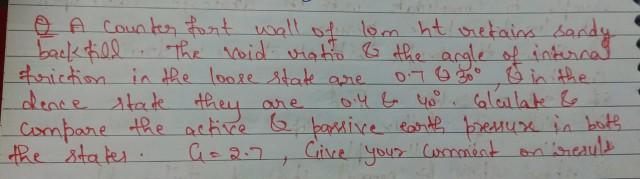 Q A Counter fort wall of 10m ht retains sandy
backfill. The void ratio & the angle of internal
friction in the loose state are 0.7 & 30°, & in the
dence state they are 0.4 & 40°. Calculate &
Compare the active & passive earth pressure in both
the states. G = 2.7, Give your Comment on result